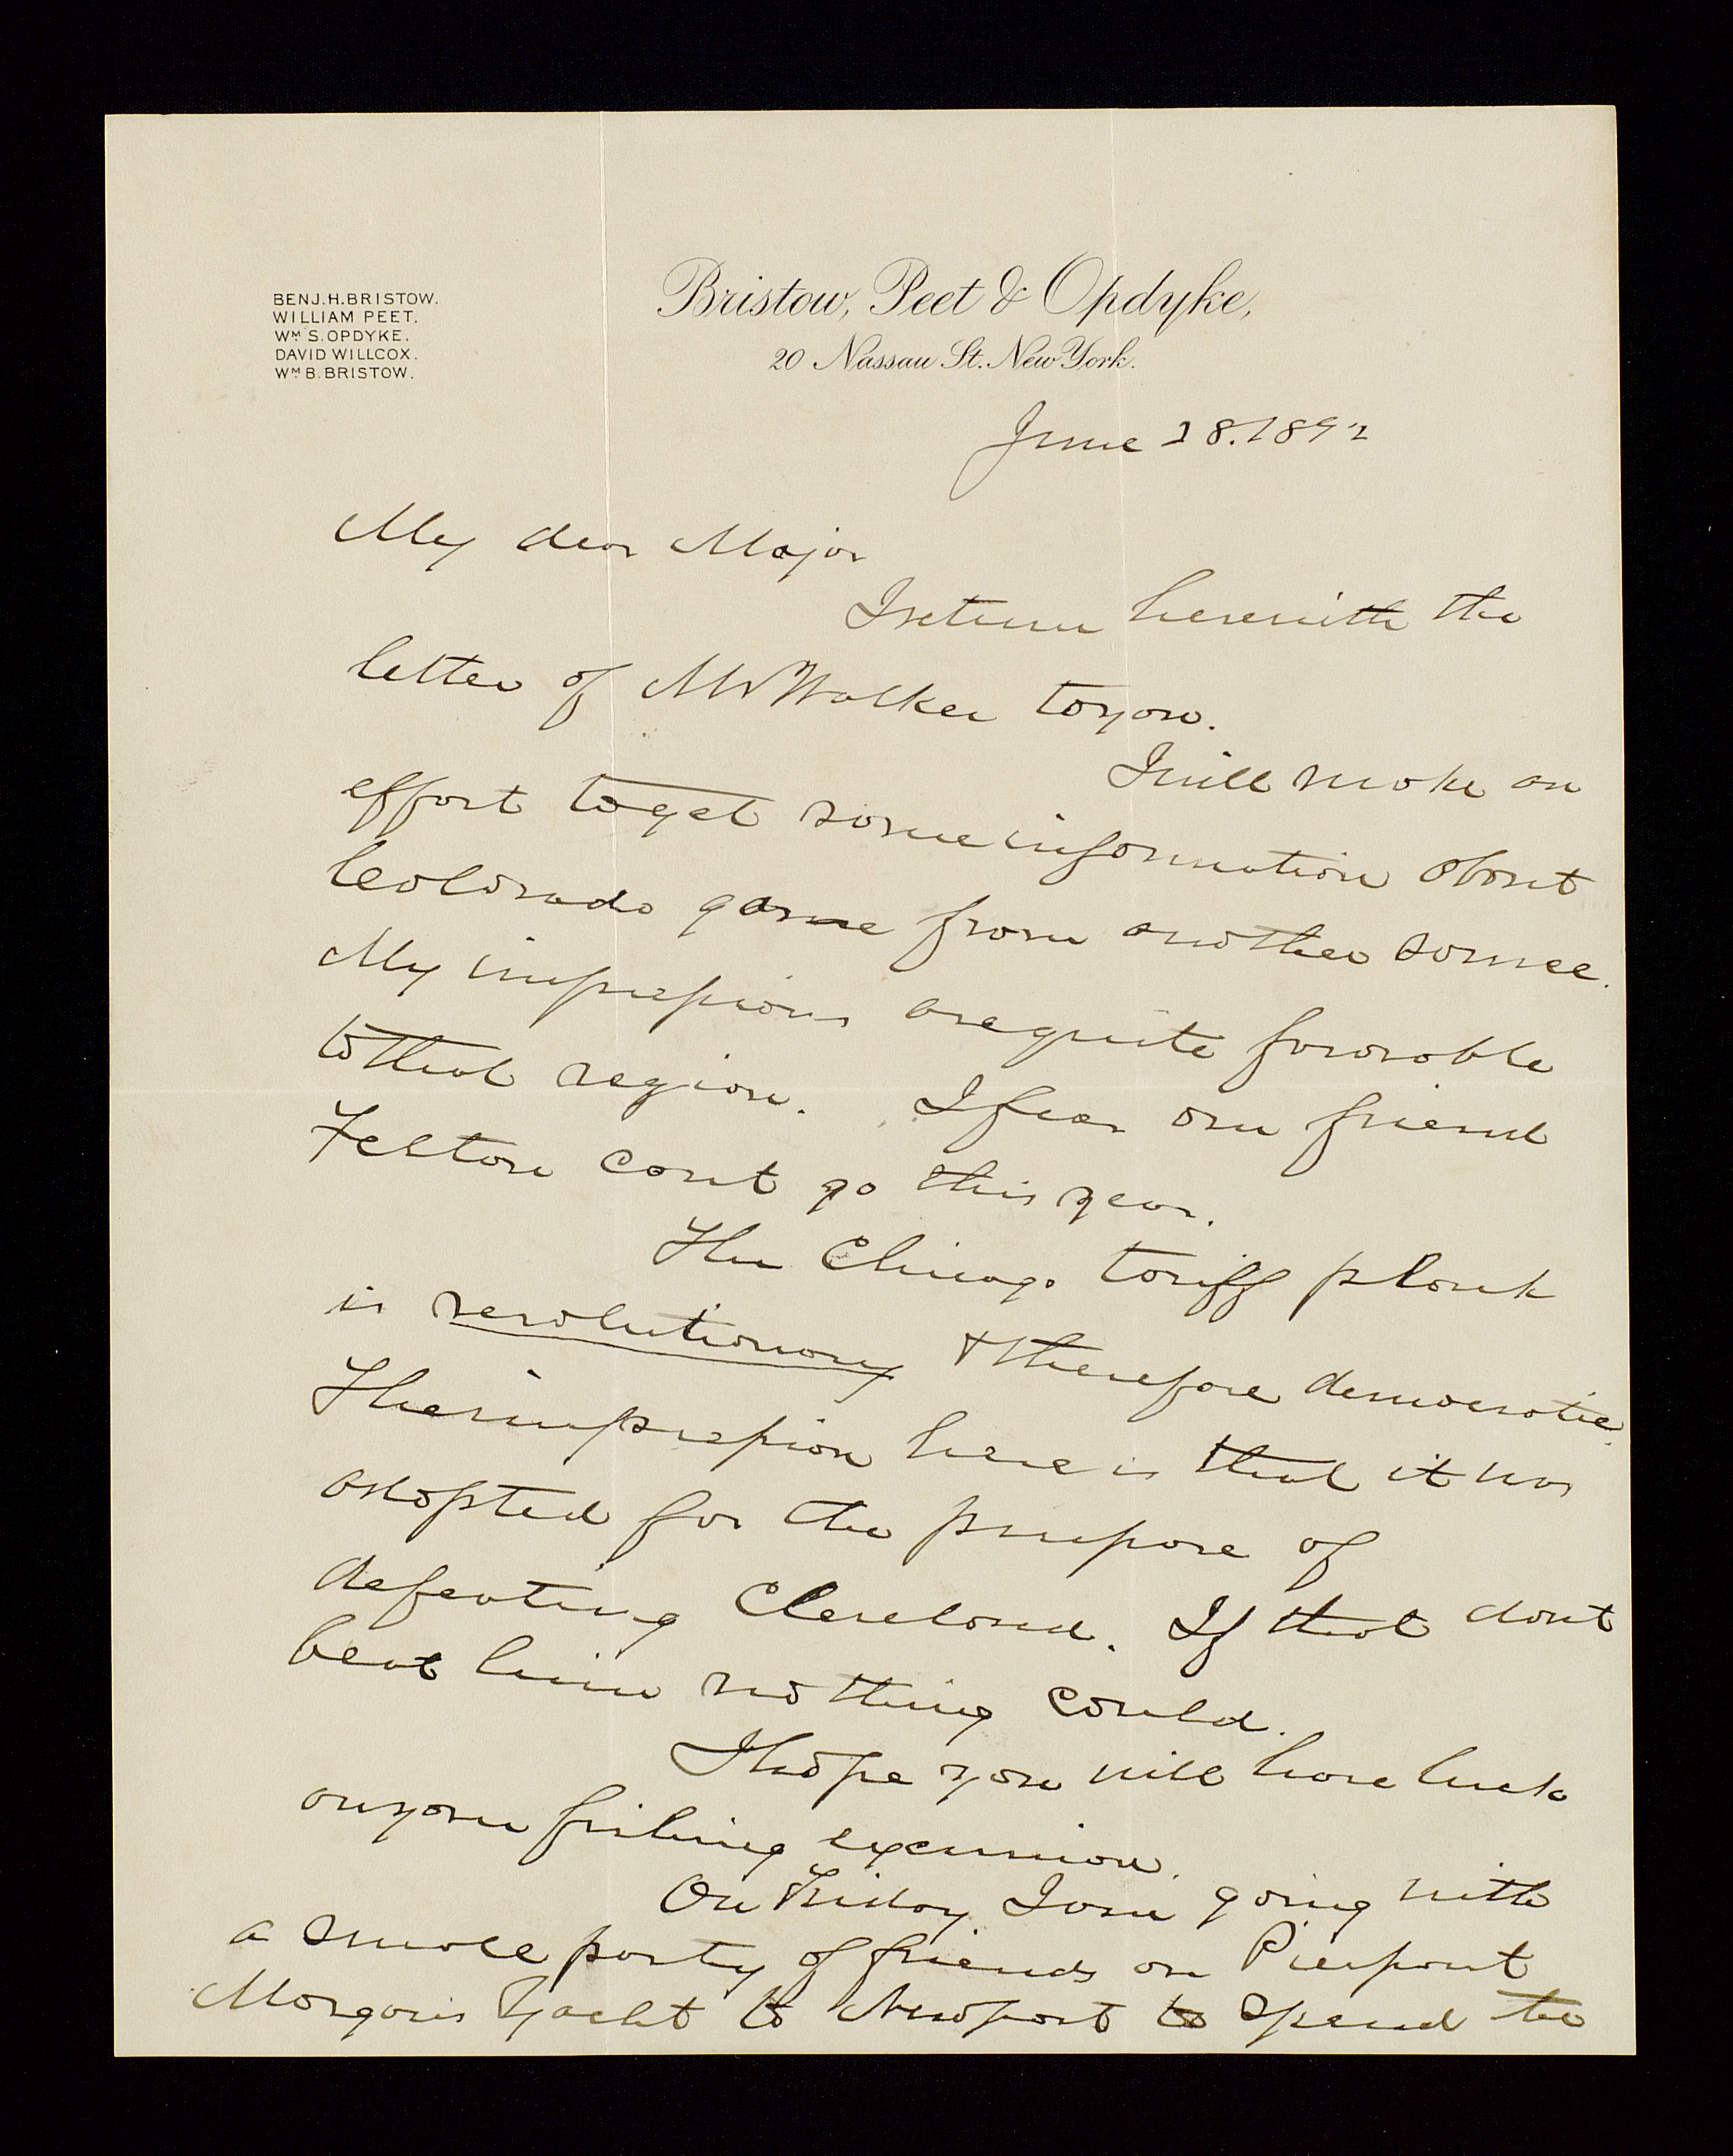 BENJ. H. BRISTOW.
WILLIAM PEET.
WM. S. OPDYKE.
DAVID WILLCOX.
WM. B. BRISTOW.
Bristow, Peet & Opdyke,
20 Nassau St. New York.
June 28. 1892
My dear Major
I return herewith the
letter of Mr Walker to you.
I will make an
effort to get some information about
Colorado game from another source.
My impressions are quite favorable
to that region. I fear our friend
Felton cant go this year.
The Chicago tariff plank
is revolutionary & therefore democratic.
The impression here is that it was
adopted for the purpose of
defeating Cleveland. If that dont
beat him nothing could.
I hope you will have luck
on your fishing excursion.
On Friday I am going with
a small party of friends on Pierpont
Morgan's Yacht to Newport to spend the